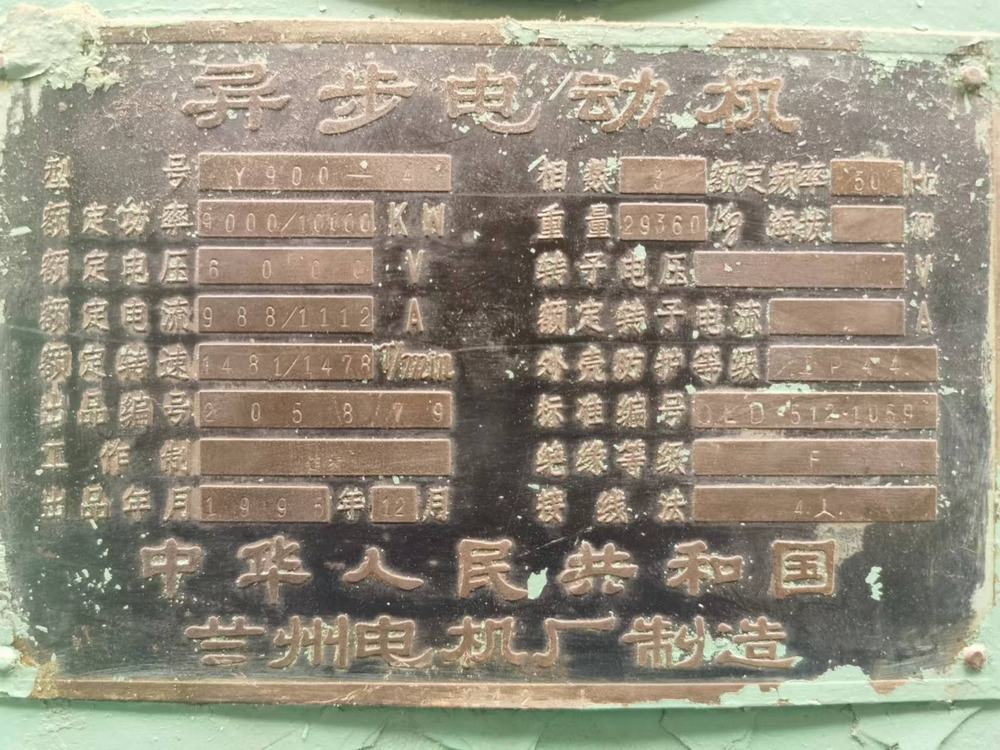 异步电动机
型号 Y900-4 相数 3 额定频率 50 Hz
额定功率 9000/10000 KW 重量 29360 kg 海拔 m
额定电压 6000 V 转子电压 V
额定电流 988/1112 A 额定转子电流 A
额定转速 1481/1478 r/min 外壳防护等级 IP44
出品编号 205879 标准编号 OLD·512·1059
工作制 连续 绝缘等级 F
出品年月 199 年 12 月 接线法 4人
中华人民共和国
兰州电机厂制造